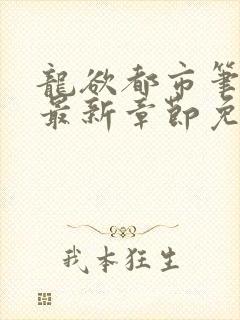 龍欲都市筆
最新章節免
我本狂生